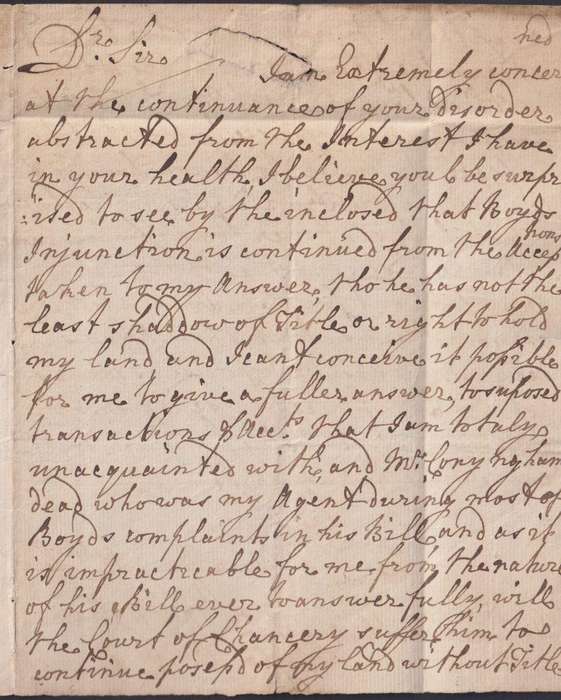 ned
Dr. Sir
I am Extremely concer
at the continuance of your Disorder
abstracted from the Interest I have
in your health, I believe youl be surpr
ised to see by the inclosed that Boyds
Injunction is continued from the Accep
tions
taken to my Answer, tho he has not the
least shaddow of Title or right to hold
my land, and I cant conceive it possible
for me to give a fuller answer, to suposed
transactions & Accts. that I am totaly
unacquainted with, and Mr. Conyngham
dead who was my Agent during most of
Boyds complaints in his Bill, and as it
is impracticable for me from the nature
of his Bill ever to answer fully, will
the Court of Chancery suffer him to
continue possesd of my land without Title